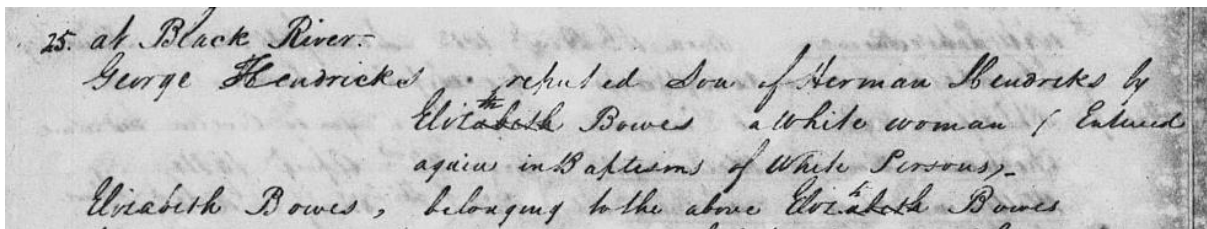 25. at Black River.-
George Hendricks, reputed Son of Herman Hendriks by
Elizth Bowes a White woman (Entered
again in Baptisms of White Persons)-
Elizabeth Bowes, belonging to the above Elizth Bowes